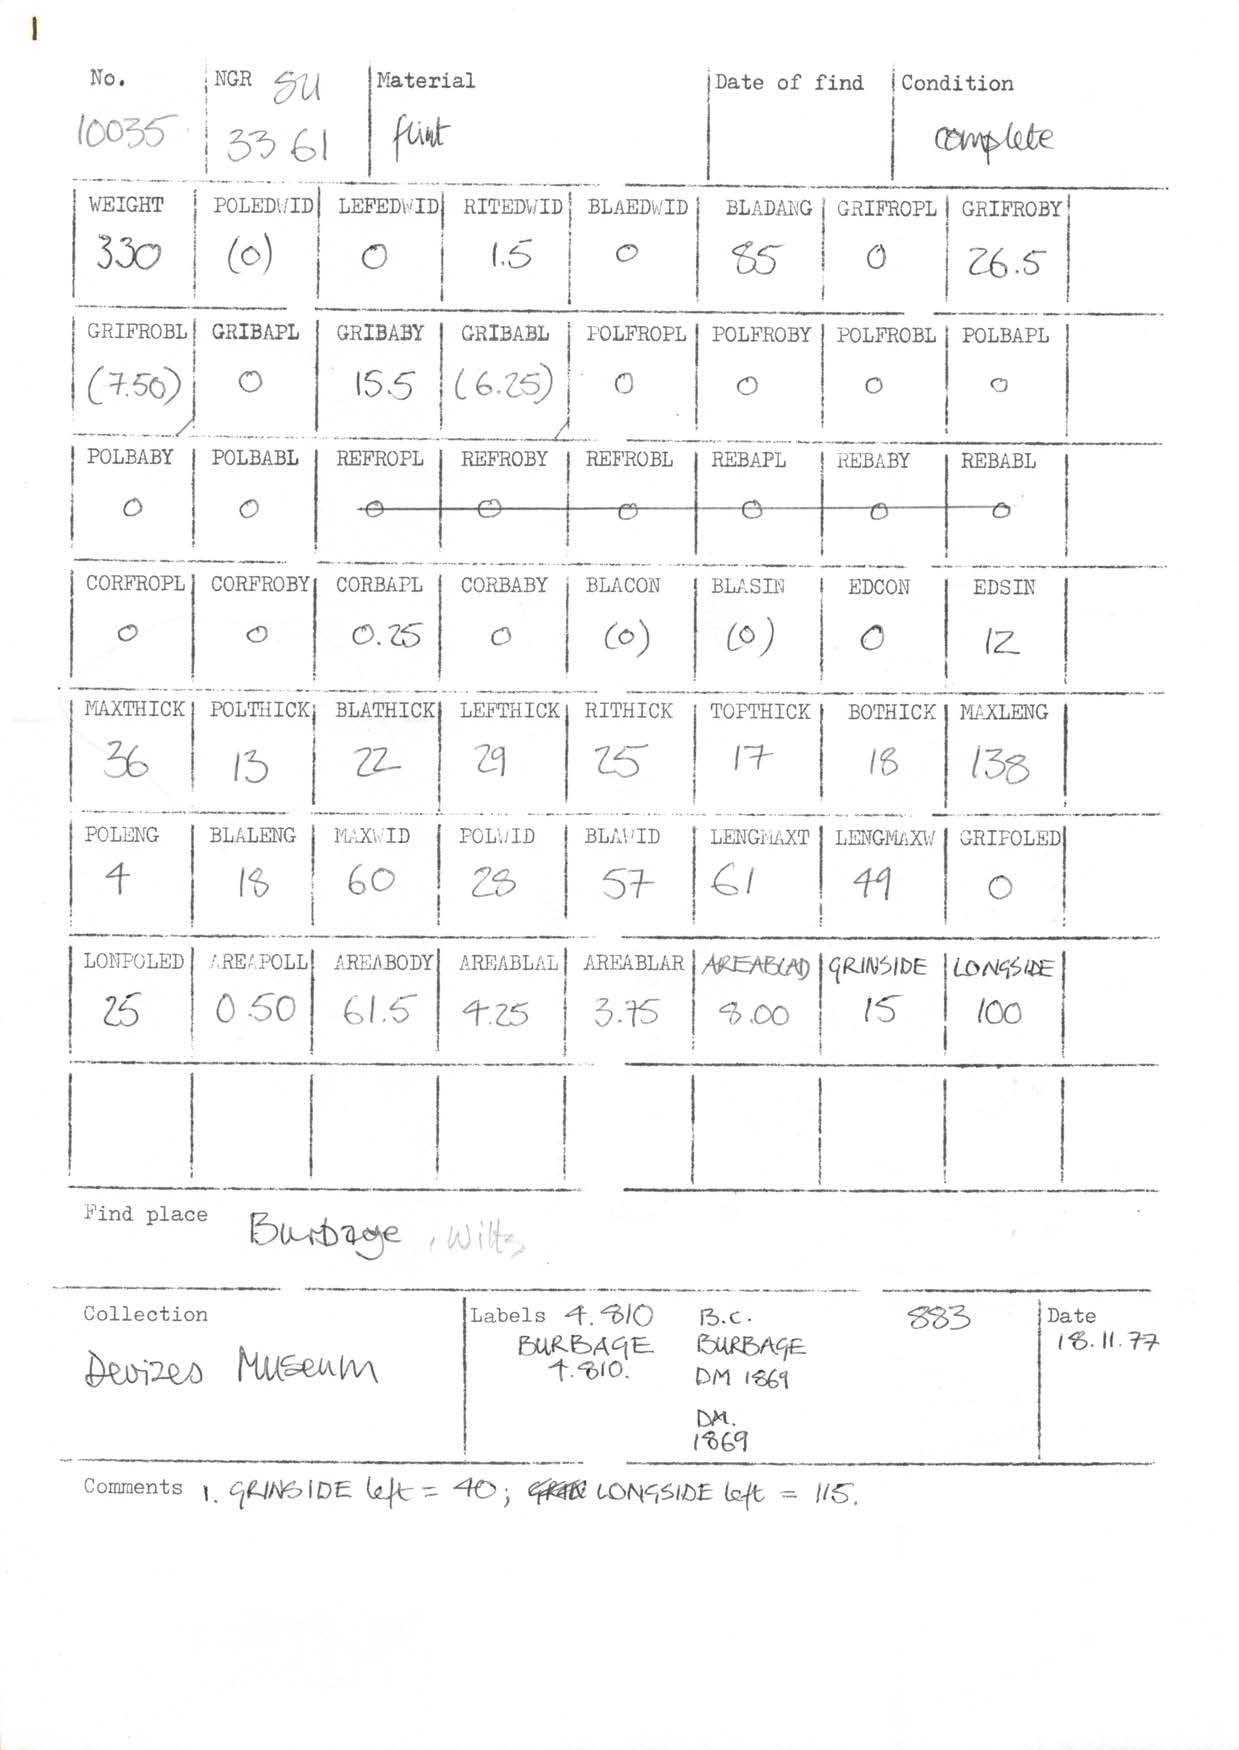 1
No. NGR SU Material Date of find Condition
10035 33 61 flint complete
WEIGHT POLEDWID LEFEDWID RITEDWID BLAEDWID BLADANG GRIFROPL GRIFROBY
330 (0) 0 1.5 0 85 0 26.5
GRIFROBL GRIBAPL GRIBABY GRIBABL POLFROPL POLFROBY POLFROBL POLBAPL
(7.50) 0 15.5 (6.25) 0 0 0 0
POLBABY POLBABL REFROPL REFROBY REFROBL REBAPL REBABY REBABL
0 0 0 0 0 0 0 0
CORFROPL CORFROBY CORBAPL CORBABY BLACON BLASIN EDCON EDSIN
0 0 0.25 0 (0) (0) 0 12
MAXTHICK POLTHICK BLATHICK LEFTHICK RITHICK TOPTHICK BOTHICK MAXLENG
36 13 22 29 25 17 18 138
POLENG BLALENG MAXWID POLWID BLAWID LENGMAXT LENGMAXW GRIPOLED
4 18 60 28 57 61 49 0
LONPOLED AREAPOLL AREABODY AREABLAL AREABLAR AREABLAD GRINSIDE LONGSIDE
25 0.50 61.5 4.25 3.75 8.00 15 100
Find place Burbage, Wilts
Collection Labels 4.810 B.C. 883 Date
BURBAGE BURBAGE 18.11.77
Devizes Museum 4.810. DM 1869
DM.
1869
Comments 1. GRINSIDE left = 40; LONGSIDE left = 115.